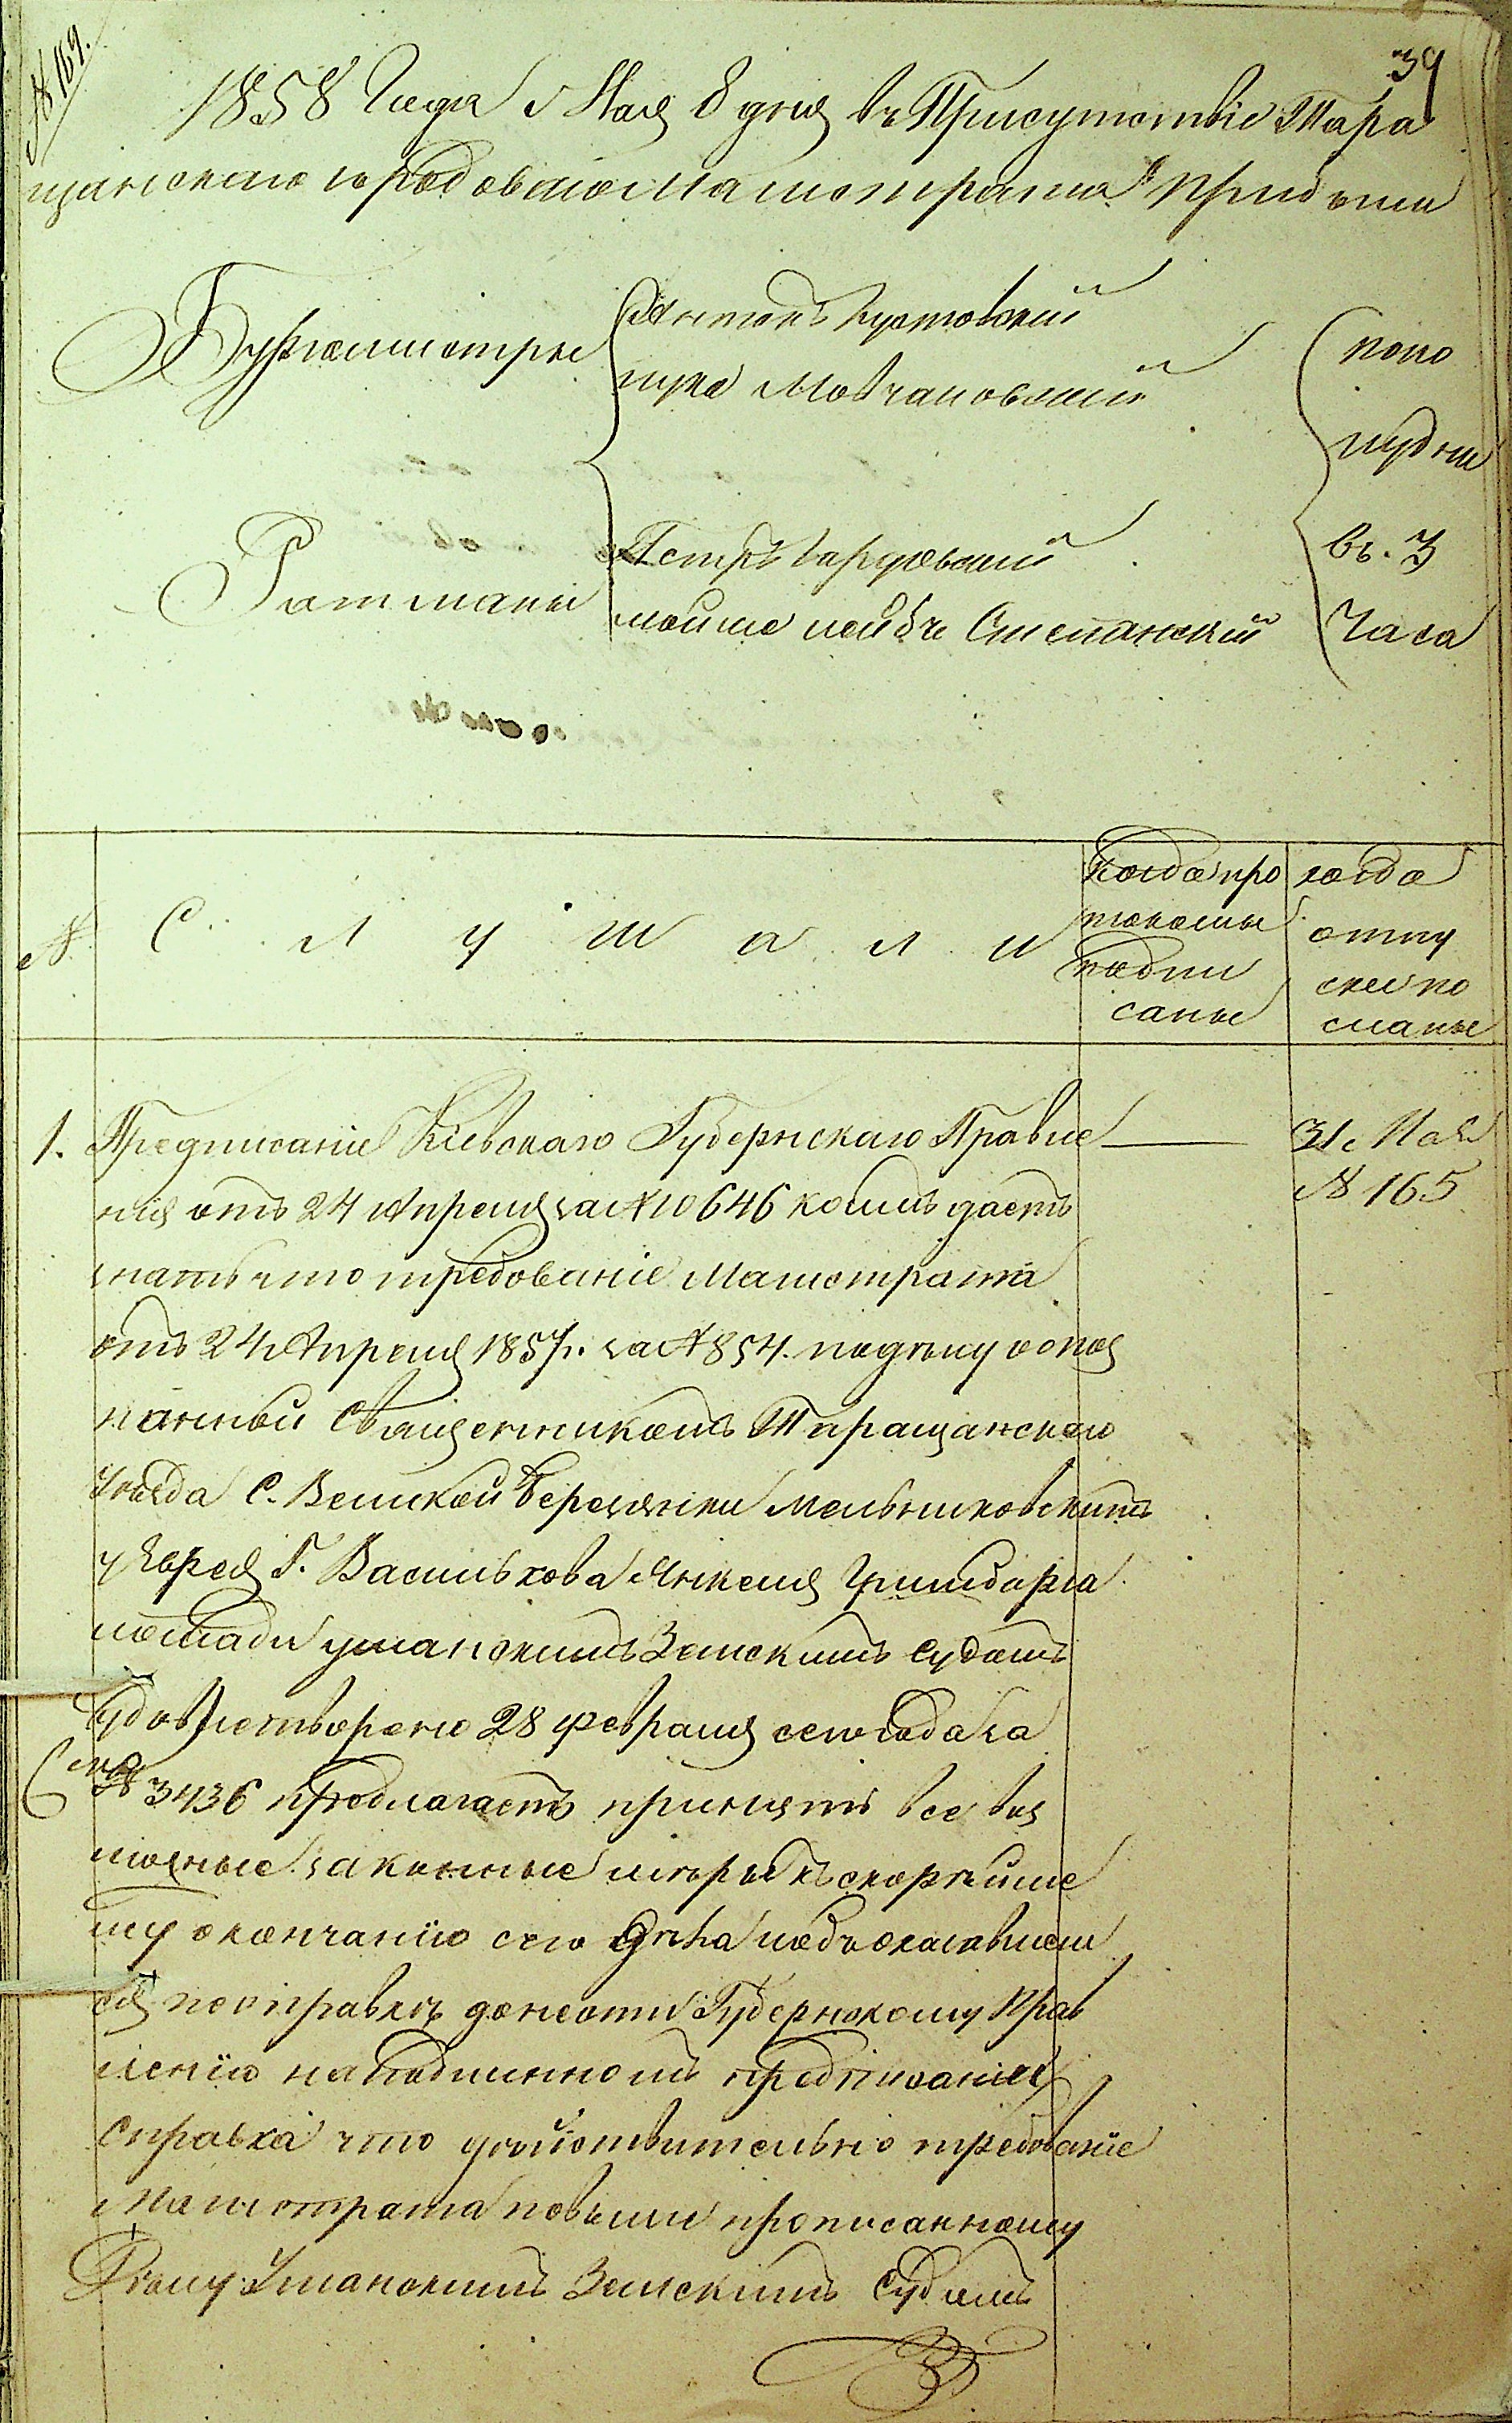 № 169.
39
1858 Года Мая 8 дня въ Присутствіе Тара
щанского городового Магистрата Прибыли
Бургомистры
Антонъ Кустовскій
лука Молчановскій
Ратманы
Петръ
мошко лейбъ Степанскій
попо
лудни
въ. 3
Часа
№. С л у ш а л и
Когда про
токолы
подпи
саны
когда
отпу
ски по
сланы
1. Предписаніе Кіевскаго Губернскаго Правле
нія отъ 24 Апреля за № 10646 коимъ даетъ
знать что требованіе Магистрата
отъ 24 Апреля 1857г. за № 854. по делу о опоз
нанной Священникомъ Таращанского
Уезда С. Великой Березянки Мельниковскимъ
у Еврея Г. Василькова Янкеля Гришбарга
лошади уманскимъ Земскимъ Судомъ
Удовлетворено 28 февраля сего Года за
№ 3436 предлагаетъ принять все воз
можные законные меры къ скорейше
му окончанию сего Дела и объ оказавшем
ся по справке донести Губернскому Прав
лению на подлинномъ предписании
Справка что действительно требование
Магистрата по выше прописанному
Делу Уманскимъ Земскимъ Судомъ
31 Мая
№ 165